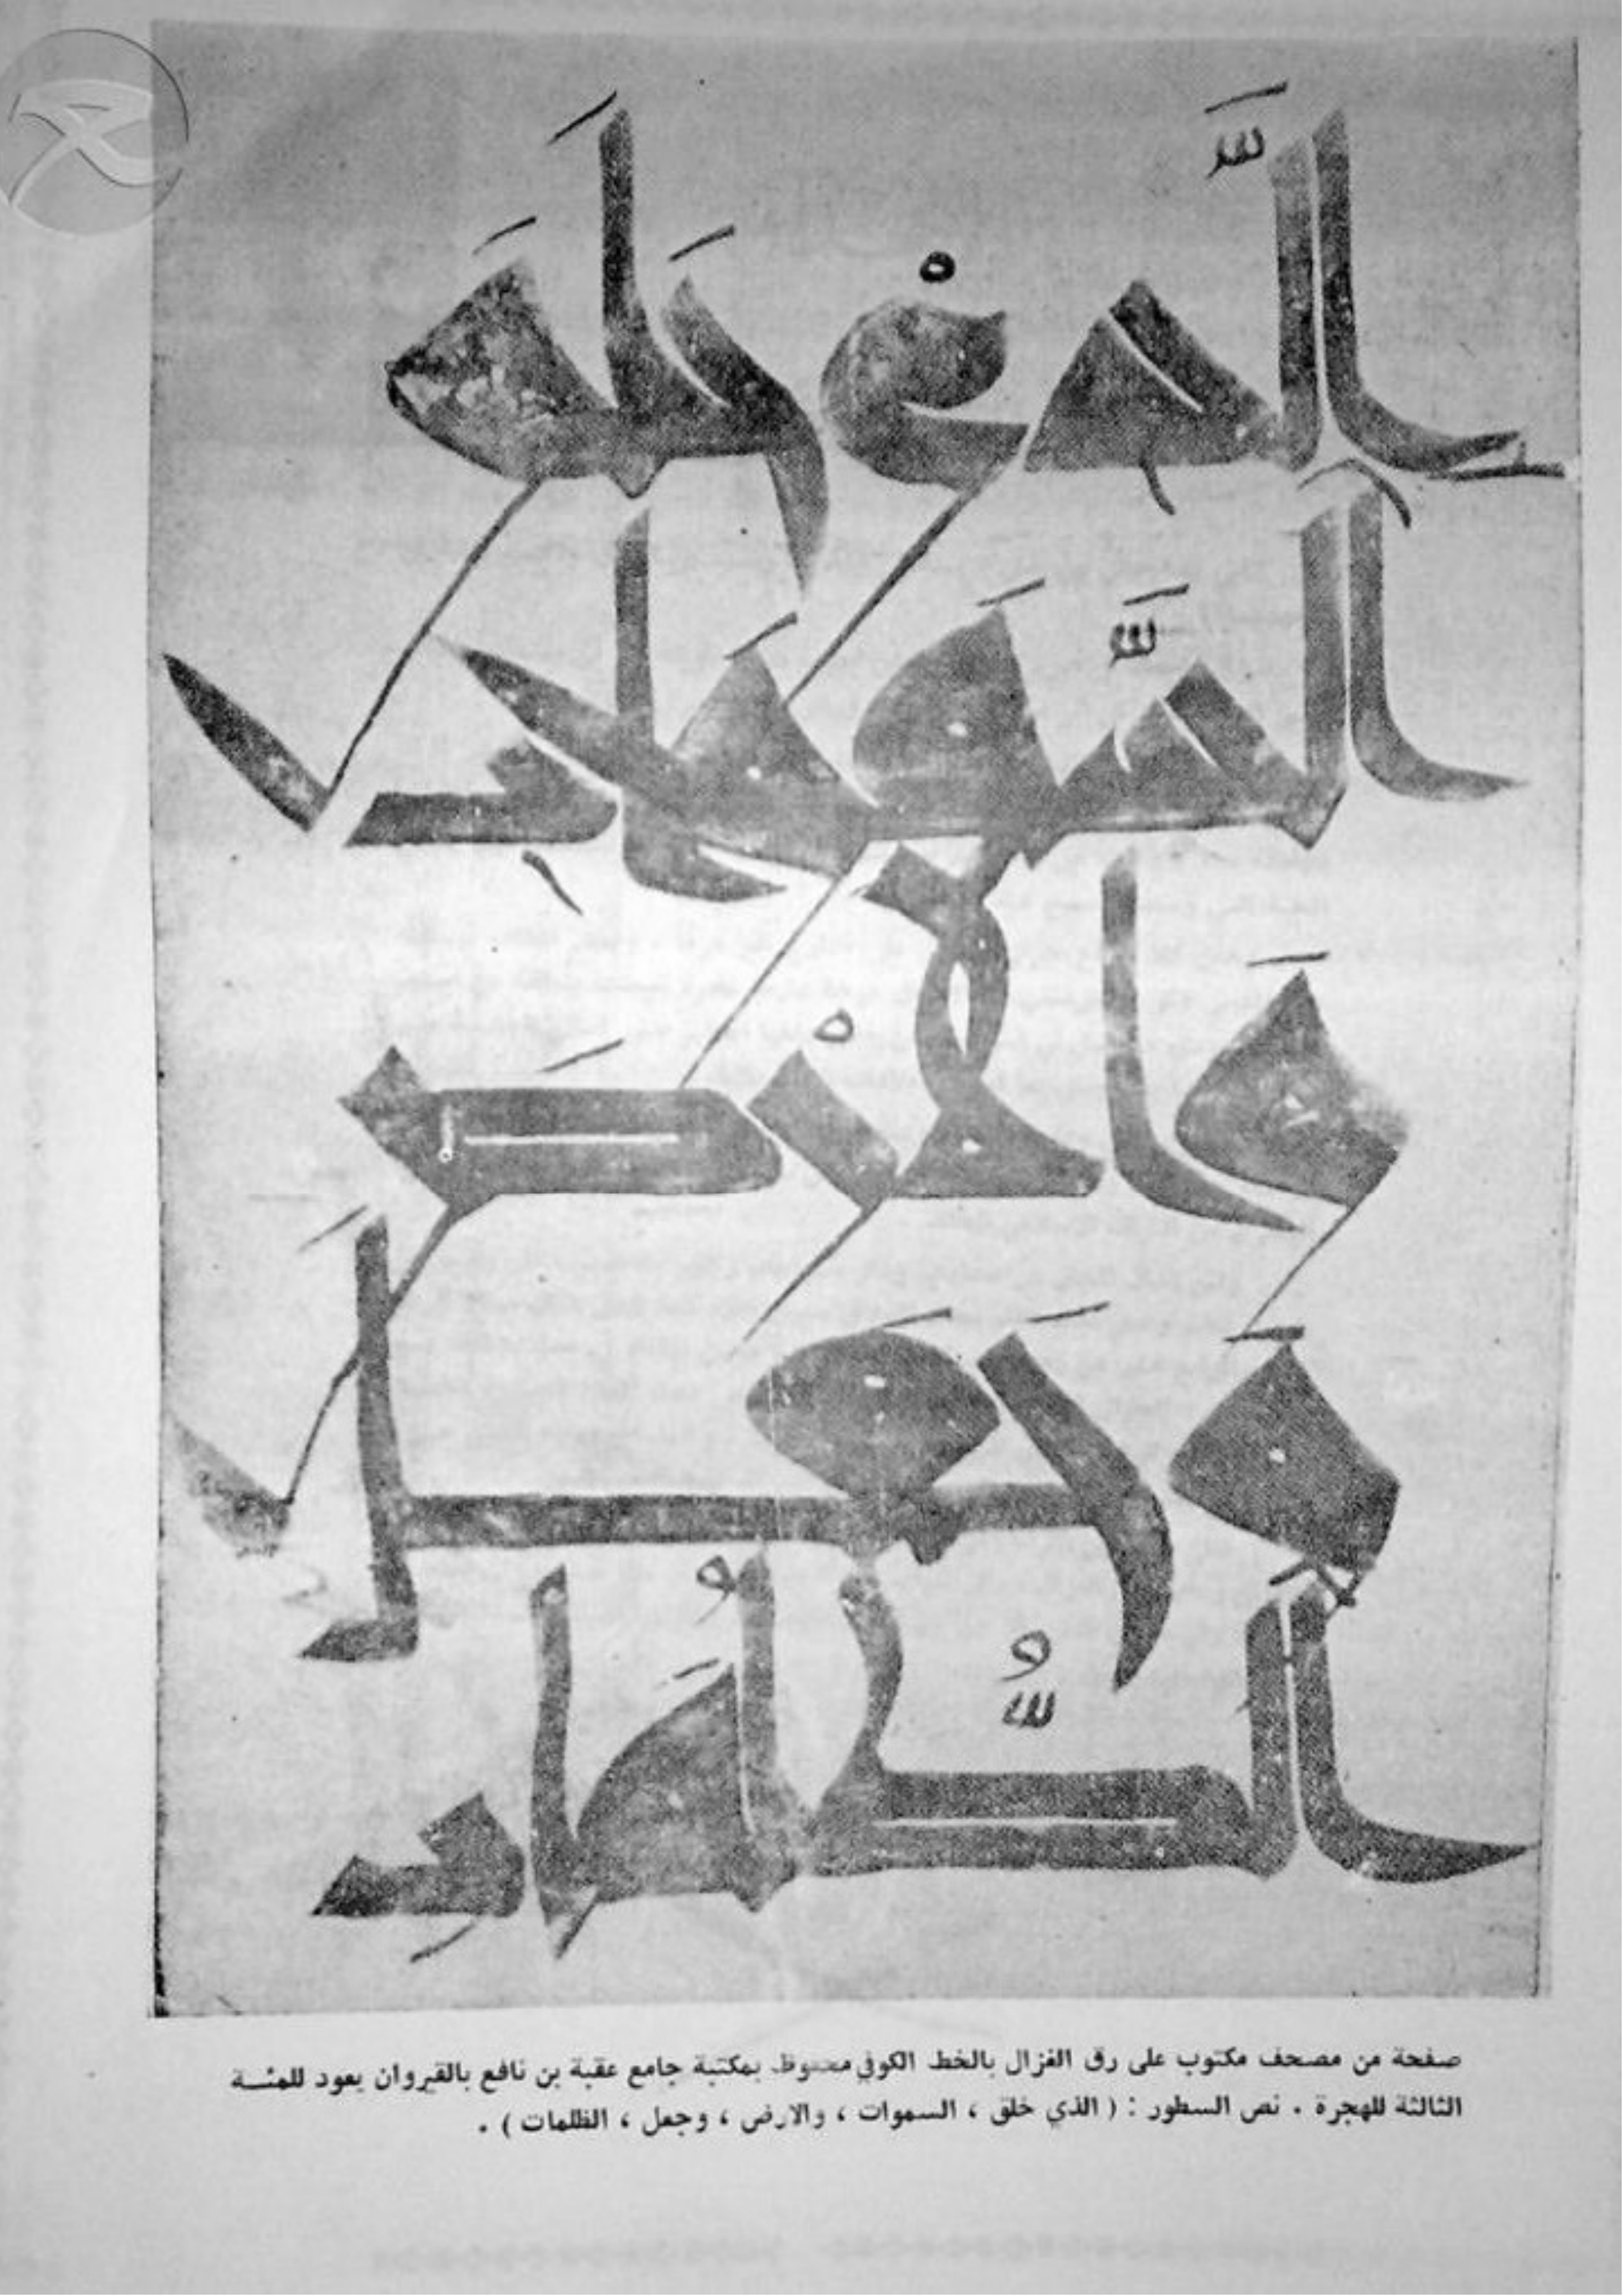 الَّذِى خَلَقَ
السَّمَوَاتِ
وَالْأَرْضَ
وَجَعَلَ
الظُّلُمَاتِ
صفحة من مصحف مكتوب على رق الغزال بالخط الكوفي محفوظ بمكتبة جامع عقبة بن نافع بالقيروان يعود للمئـة
الثالثة للهجرة . نص السطور : ( الذي خلق ، السموات ، والارض ، وجعل ، الظلمات ) .